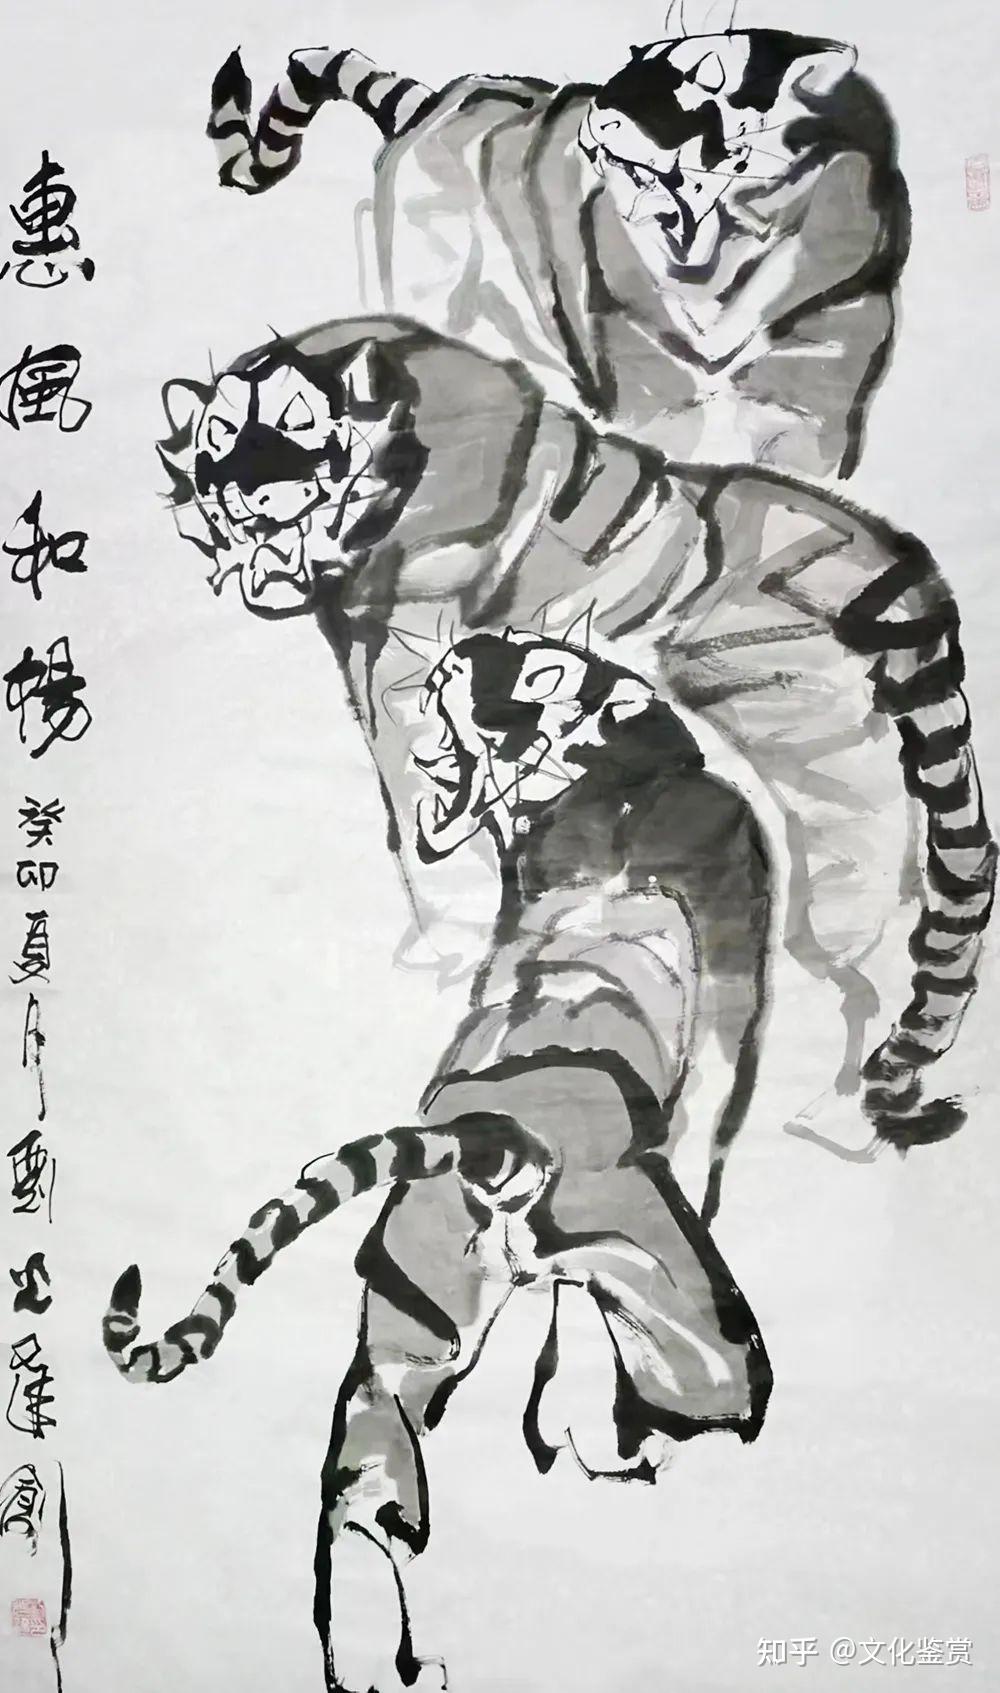 惠風和暢
癸卯夏月劉
知乎 @文化鉴赏